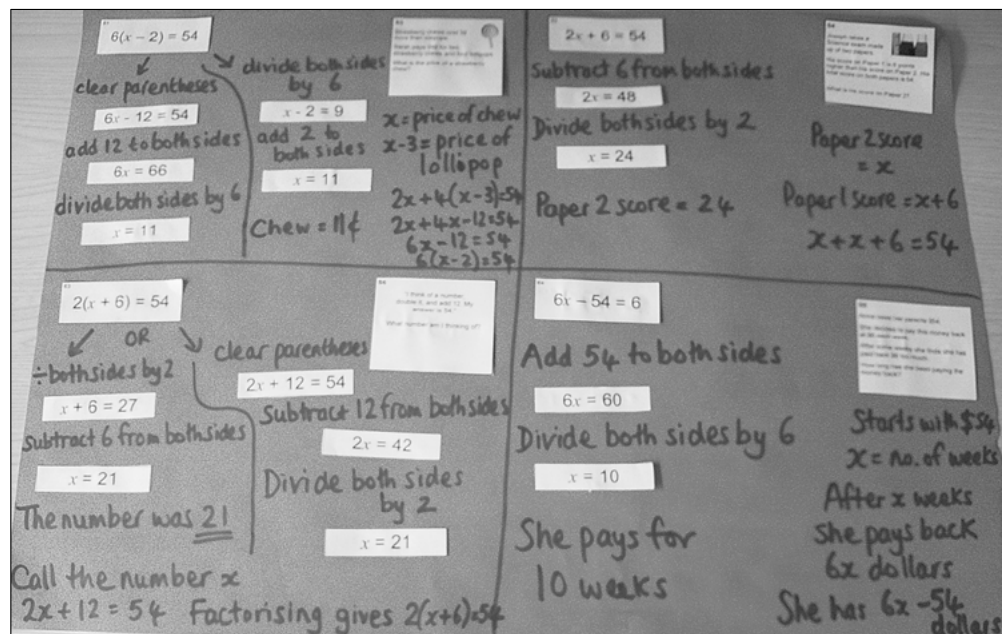 6(x – 2) = 54
clear parentheses
6x - 12 = 54
add 12 to both sides
6x = 66
divide both sides by 6
x = 11
divide both sides
by 6
x - 2 = 9
add 2 to
both sides
x = 11
Chew = 11¢
What is the price of a strawberry
chew?
x = price of chew
x-3 = price of
lollipop
2x+4(x-3)=54
2x+4x-12=54
6x-12=54
6(x-2)=54
2x + 6 = 54
Subtract 6 from both sides
2x = 48
Divide both sides by 2
x = 24
Paper 2 score = 24
What is his score on Paper 2?
Paper 2 score
= x
Paper 1 score = x+6
x + x + 6 = 54
2(x + 6) = 54
OR
÷ both sides by 2
x + 6 = 27
Subtract 6 from both sides
x = 21
The number was 21
clear parentheses
2x + 12 = 54
Subtract 12 from both sides
2x = 42
Divide both sides
by 2
x = 21
"I think of a number,
double it, and add 12. My
answer is 54."
What number am I thinking of?
Call the number x
2x + 12 = 54 Factorising gives 2(x+6)=54
6x – 54 = 6
Add 54 to both sides
6x = 60
Divide both sides by 6
x = 10
She pays for
10 weeks
She decides to pay this money back
How long has she been paying the
money back?
Starts with $54
x = no. of weeks
After x weeks
she pays back
6x dollars
She has 6x - 54
dollars